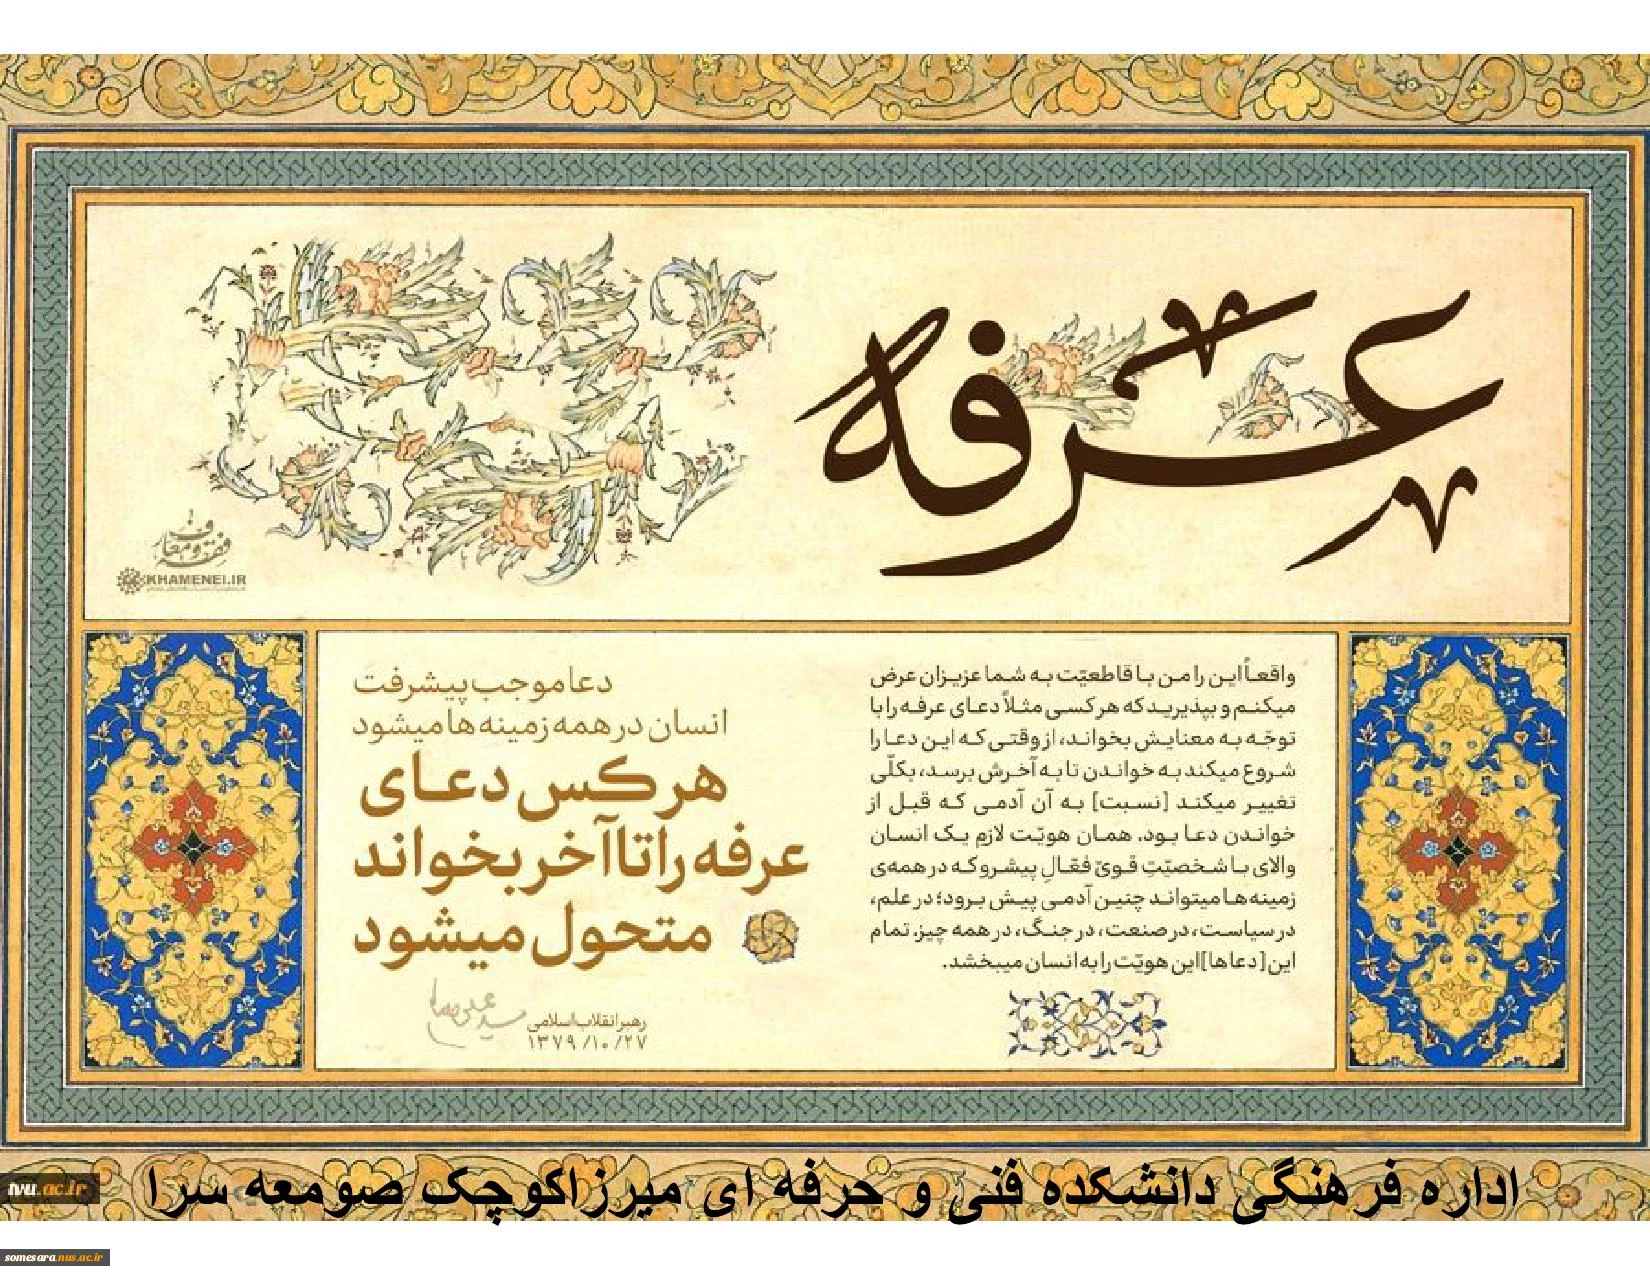 عرفه
فقه و معارف
KHAMENEI.IR
واقعاً این را من با قاطعیّت به شما عزیزان عرض
میکنم و بپذیرید که هر کسی مثلاً دعای عرفه را با
توجّه به معنایش بخواند، از وقتی که این دعا را
شروع میکند به خواندن تا به آخرش برسد، بکلّی
تغییر میکند [نسبت] به آن آدمی که قبل از
خواندن دعا بود. همان هویّت لازم یک انسان
والای با شخصیّتِ قویّ فعّالِ پیشرو که در همه‌ی
زمینه‌ها میتواند چنین آدمی پیش برود؛ در علم،
در سیاست، در صنعت، در جنگ، در همه چیز. تمام
این [دعاها] این هویّت را به انسان میبخشد.
دعا موجب پیشرفت
انسان در همه زمینه‌ها میشود
هر کس دعای
عرفه را تا آخر بخواند
متحول میشود
رهبر انقلاب اسلامی
۱۳۷۹/۱۰/۲۷
اداره فرهنگی دانشکده فنی و حرفه ای میرزاکوچک صومعه سرا
nvu.ac.ir
somesara.nus.ac.ir